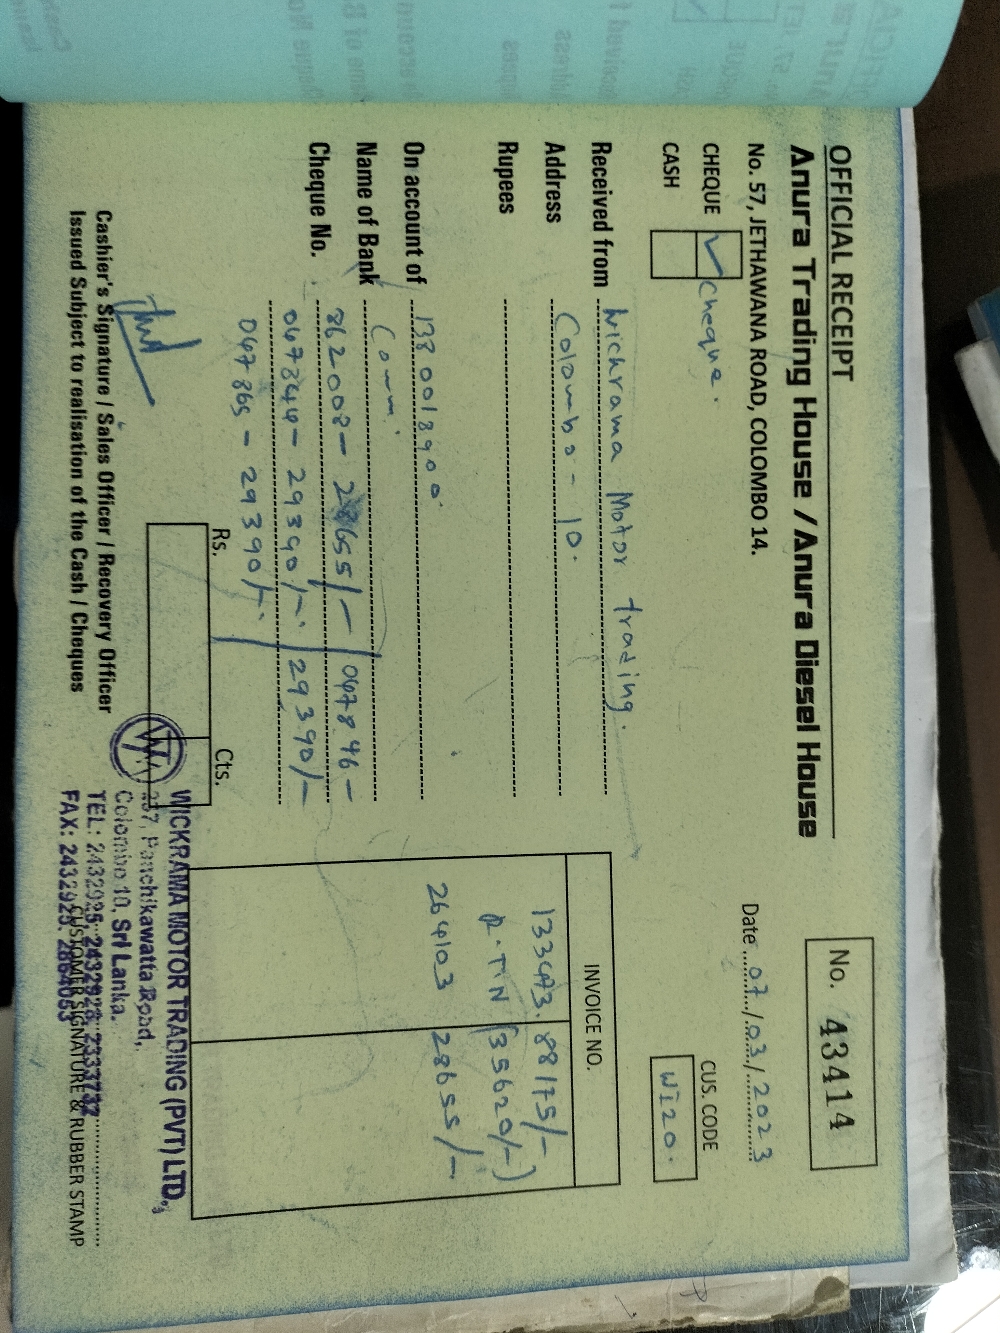 OFFICIAL RECEIPT
Anura Trading House / Anura Diesel House
No. 57, JETHAWANA ROAD, COLOMBO 14.
No. 43414
Date 07/03/2023
CHEQUE ✓ cheque.
CASH
CUS. CODE
WI20.
Received from Wickrama Motor trading.
Address Colombo - 10.
Rupees
On account of 1380018900
Name of Bank Comm.
Cheque No. 862008 - 28655/- / 047846 -
047844 - 29390/- / 29390/-
047865 - 29390/-
INVOICE NO.
133493. 88175/-
R.TIN (35620/-)
264103 28655/-
Rs. Cts.
Cashier's Signature / Sales Officer / Recovery Officer
Issued Subject to realisation of the Cash / Cheques
WICKRAMA MOTOR TRADING (PVT) LTD.,
Panchikawatta Road,
Colombo 10, Sri Lanka.
TEL: 2432925, 2432928, 2333732
FAX: 2432925, 2864053
CUSTOMER SIGNATURE & RUBBER STAMP